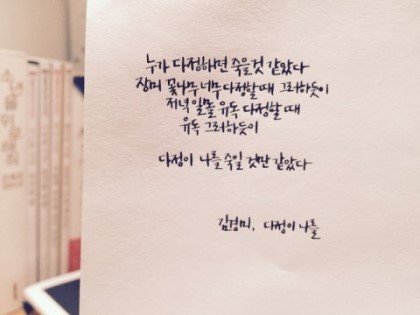 누가 다정하면 죽을것 같았다
장미 꽃나무 너무 다정할 때 그러하듯이
저녁 일몰 유독 다정할 때
유독 그러하듯이
다정이 나를 죽일 것만 같았다
김경미, 다정이 나를